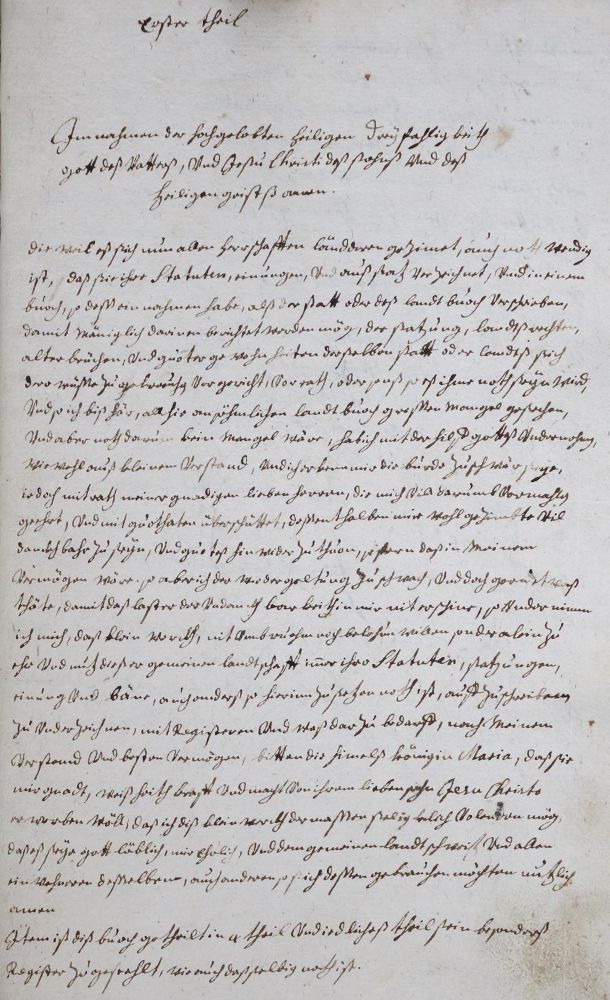 Erster theil
Im nahmen der hochgelobten heiligen dreÿfahltigkeith
gott deß Vatters, Vnd Jesu Christi deß sohnß Vnd deß
heiligen geistß amen.
die weil eß sich nun allen herrschafften länderen gezimet, auch nottwendig
ist, daß sie ihre Statuten, einungen, Vnd auffsatz Verzeichnet, Vnd in einem
buoch, so dessen ein nahmen habe, alß der statt oder deß landt buoch Verschriben,
damit Mäniglich darinen berichtet werden mög, der satzung, landtßrechten,
alter brüchen, Vnd guoter gewohnheiten derselben statt oder landtß sich
dero müsse zu gebrauchen Vor gericht, Vor rath, oder sonst so eß ihme noth seÿn wird,
Vnd so ich biß här, all hie an söhnlichen landt buoch grossen mangel gesechen,
Vnd aber noth darum kein Mangel wäre, hab ich mit der hilff gotteß Vndernohmen,
wie wohl auß kleinem Verstand, Vnd ich erkenn mir die bürde zu schwär seÿe,
iedoch mit rath meiner gnädigen lieben herren, die mich Vil darumb Vormahlß
geehrt, Vnd mit guothaten überschüttet, dessenthalben mir wohl gezimbte Vil
danckbahr zu seÿn, Vnd guoteß hinwider zu thuon, so fern daß in Meinem
Vermögen wäre, so aber ich der widergeltung zu schwach, Vnd doch gern etwaß
thäte, damit daß laster der Vndanckbarkeith in mir nit erschine, so Vndernimm
ich mich, daß klein werckh, nit Umb ruohm noch belohnung willen sonder alein zu
ehr Vnd nutz disser gemeinen landtschafft immer ihro Statuten, satzungen,
einung Vnd bäne, auch anderß so hierin zu setzen noth ist, auff zu schreiben
zu Vnderzeichnen, mit Registeren Vnd waß darzu bedarff, nach Meinem
Verstand Vnd besten Vermögen, bitten die himelß königin Maria, daß sie
mir gnadt, weißheith krafft Vnd macht Von ihrem lieben sohn Jesu Christo
erwerben wöll, daß ich diß klein werckh dermassen selig Volenden mög,
daß eß seÿe gott löblich, mir ehrlich, Vnd dem gemeinen landtschrei Vnd allen
einwohneren desselben, auch anderen, so sich dessen gebrauchen möchten nutzlich
amen
Item ist diß buoch getheilt in 4 theil Vnd iedlicheß theil sein besonderß
Register zu gesrahlt, wie auch dasselbig noth ist.